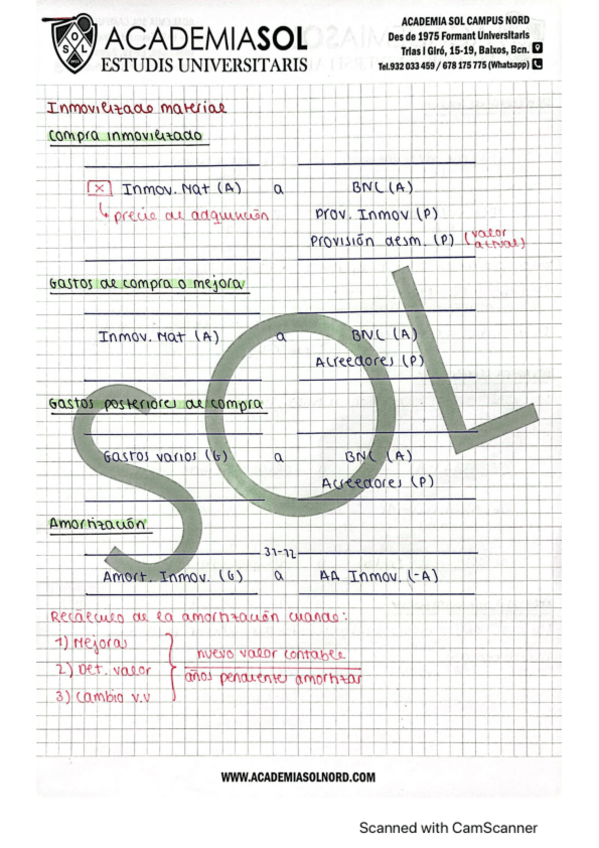 ACADEMIA SOL CAMPUS NORD
Des de 1975 Formant Universitaris
Trias I Giró, 15-19, Baixos, Bcn.
Tel.932 033 459 / 678 175 775 (Whatsapp)
ACADEMIASOL
ESTUDIS UNIVERSITARIS
Inmovilizado material
Compra inmovilizado
x Inmov. Mat (A) a BNC (A)
↳ precio de adquisición Prov. Inmov (P)
Provisión desm. (P) (valor actual)
Gastos de compra o mejora
Inmov. Mat (A) a BNC (A)
Acreedores (P)
Gastos posteriores de compra
Gastos varios (G) a BNC (A)
Acreedores (P)
Amortización
31-12
Amort. Inmov. (G) a AA Inmov. (-A)
Recálculo de la amortización cuando:
1) Mejoras
2) Det. valor
3) Cambio v.v
nuevo valor contable
años pendientes amortizar
SOL
WWW.ACADEMIASOLNORD.COM
Scanned with CamScanner